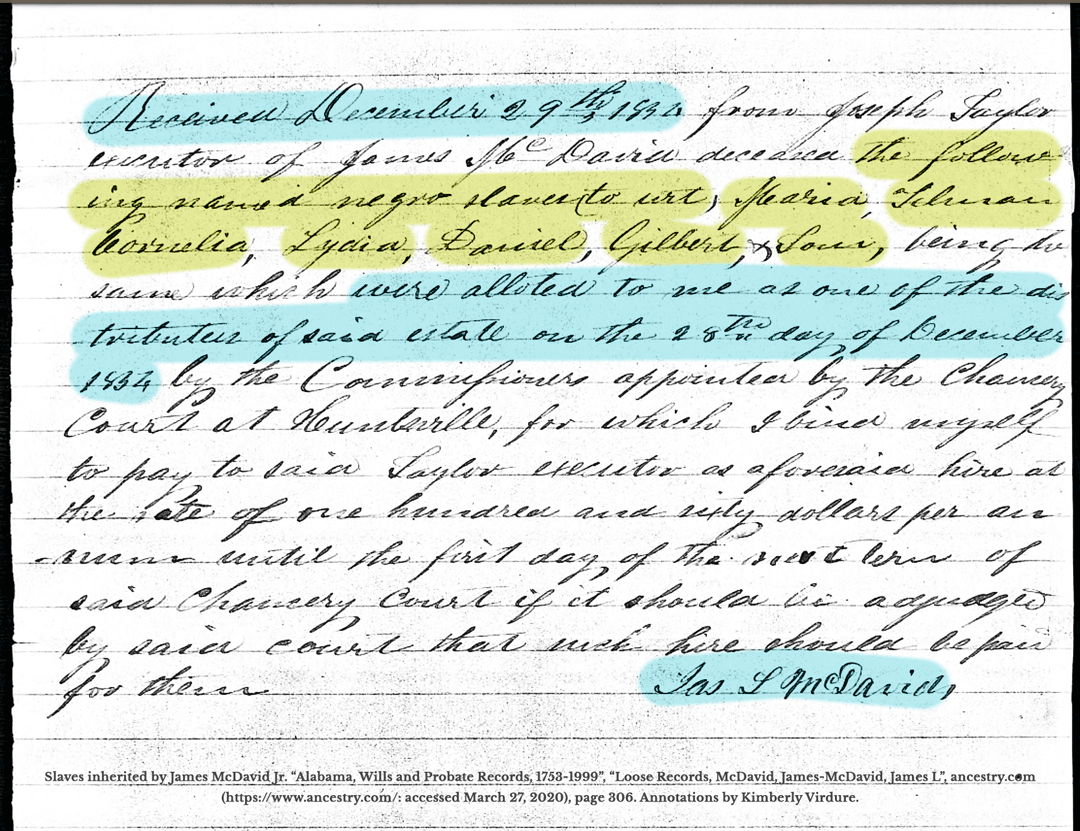 Received December 29th 1834 from Joseph Taylor
executor of James McDavid deceased the follow
ing named negro slaves (to wit) Maria, Tilman
Cornelia, Lydia, Daniel, Gilbert, & Sam, being the
same which were alloted to me as one of the dis
tributees of said estate on the 28th day of December
1834 by the Commissioners appointed by the Chancery
Court at Huntsville, for which I bind myself
to pay to said Taylor executor as aforesaid hire at
the rate of one hundred and sixty dollars per an
-num until the first day of the next term of
said Chancery Court if it should be adjudged
by said court that such hire should be paid
for them
Jas L McDavid,
Slaves inherited by James McDavid Jr. “Alabama, Wills and Probate Records, 1753-1999”, “Loose Records, McDavid, James-McDavid, James L”, ancestry.com
(https://www.ancestry.com/: accessed March 27, 2020), page 306. Annotations by Kimberly Virdure.